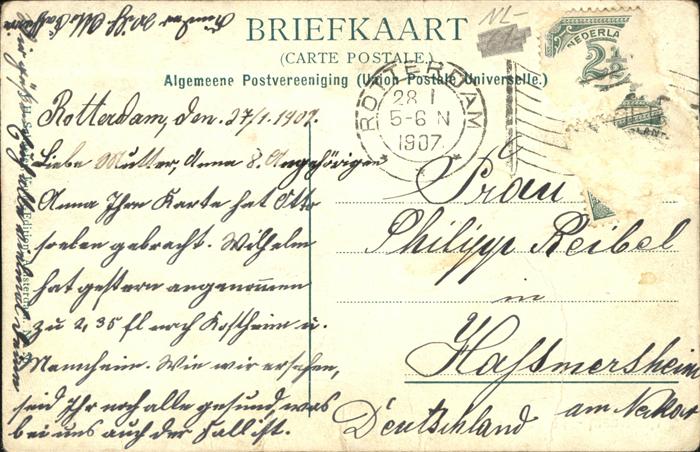 BRIEFKAART
(CARTE POSTALE.)
Algemeene Postvereeniging (Union Postale Universelle.)
NL-
ROTTERDAM
28 1
5-6 N
1907
NEDERLA
2½
Rotterdam, den. 27/1. 1907.
Liebe Mutter, Anna & Angehörigen
Anna Ihre Karte hat Otto
soeben gebracht. Wilhelm
hat gestern angenommen
zu 2,35 fl nach Kostheim u.
Mannheim. Wie wir ersehen,
seid Ihr noch alle gesund, was
bei uns auch der Fall ist.
Frau
Philipp Reibel
in
Hassmersheim
am Neckar
Deutschland